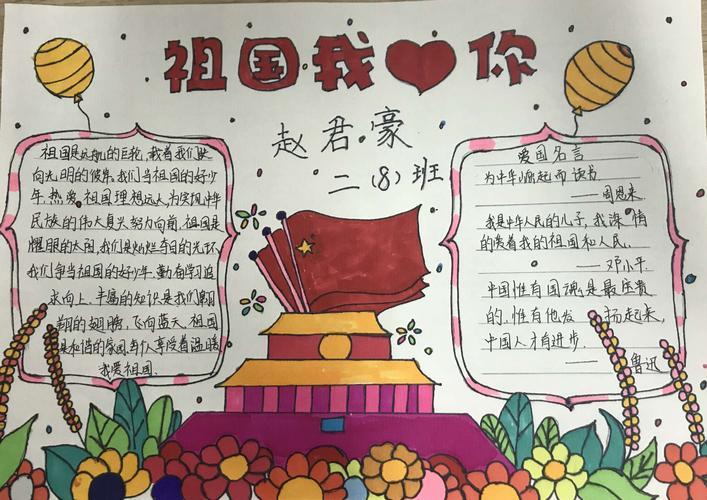 祖国我❤你
赵君豪
二(8)班
祖国是远航的巨轮,载着我们驶
向光明的彼岸。我们当祖国的好少
年,热爱祖国理想远大,为实现中华
民族的伟大复兴努力向前。祖国是
耀眼的太阳,我们是灿烂夺目的光环
我们争当祖国的好少年,勤奋学习追
求向上,丰富的知识是我们翱
翔的翅膀,飞向蓝天。祖国
是和谐的家园,每个人享受着温暖
我爱祖国.
爱国名言
为中华崛起而读书
——周恩来.
我是中华人民的儿子,我深情
的爱着我的祖国和人民.
——邓小平.
中国惟有国魂是最宝贵
的.惟有他发扬起来,
中国人才有进步.
——鲁迅